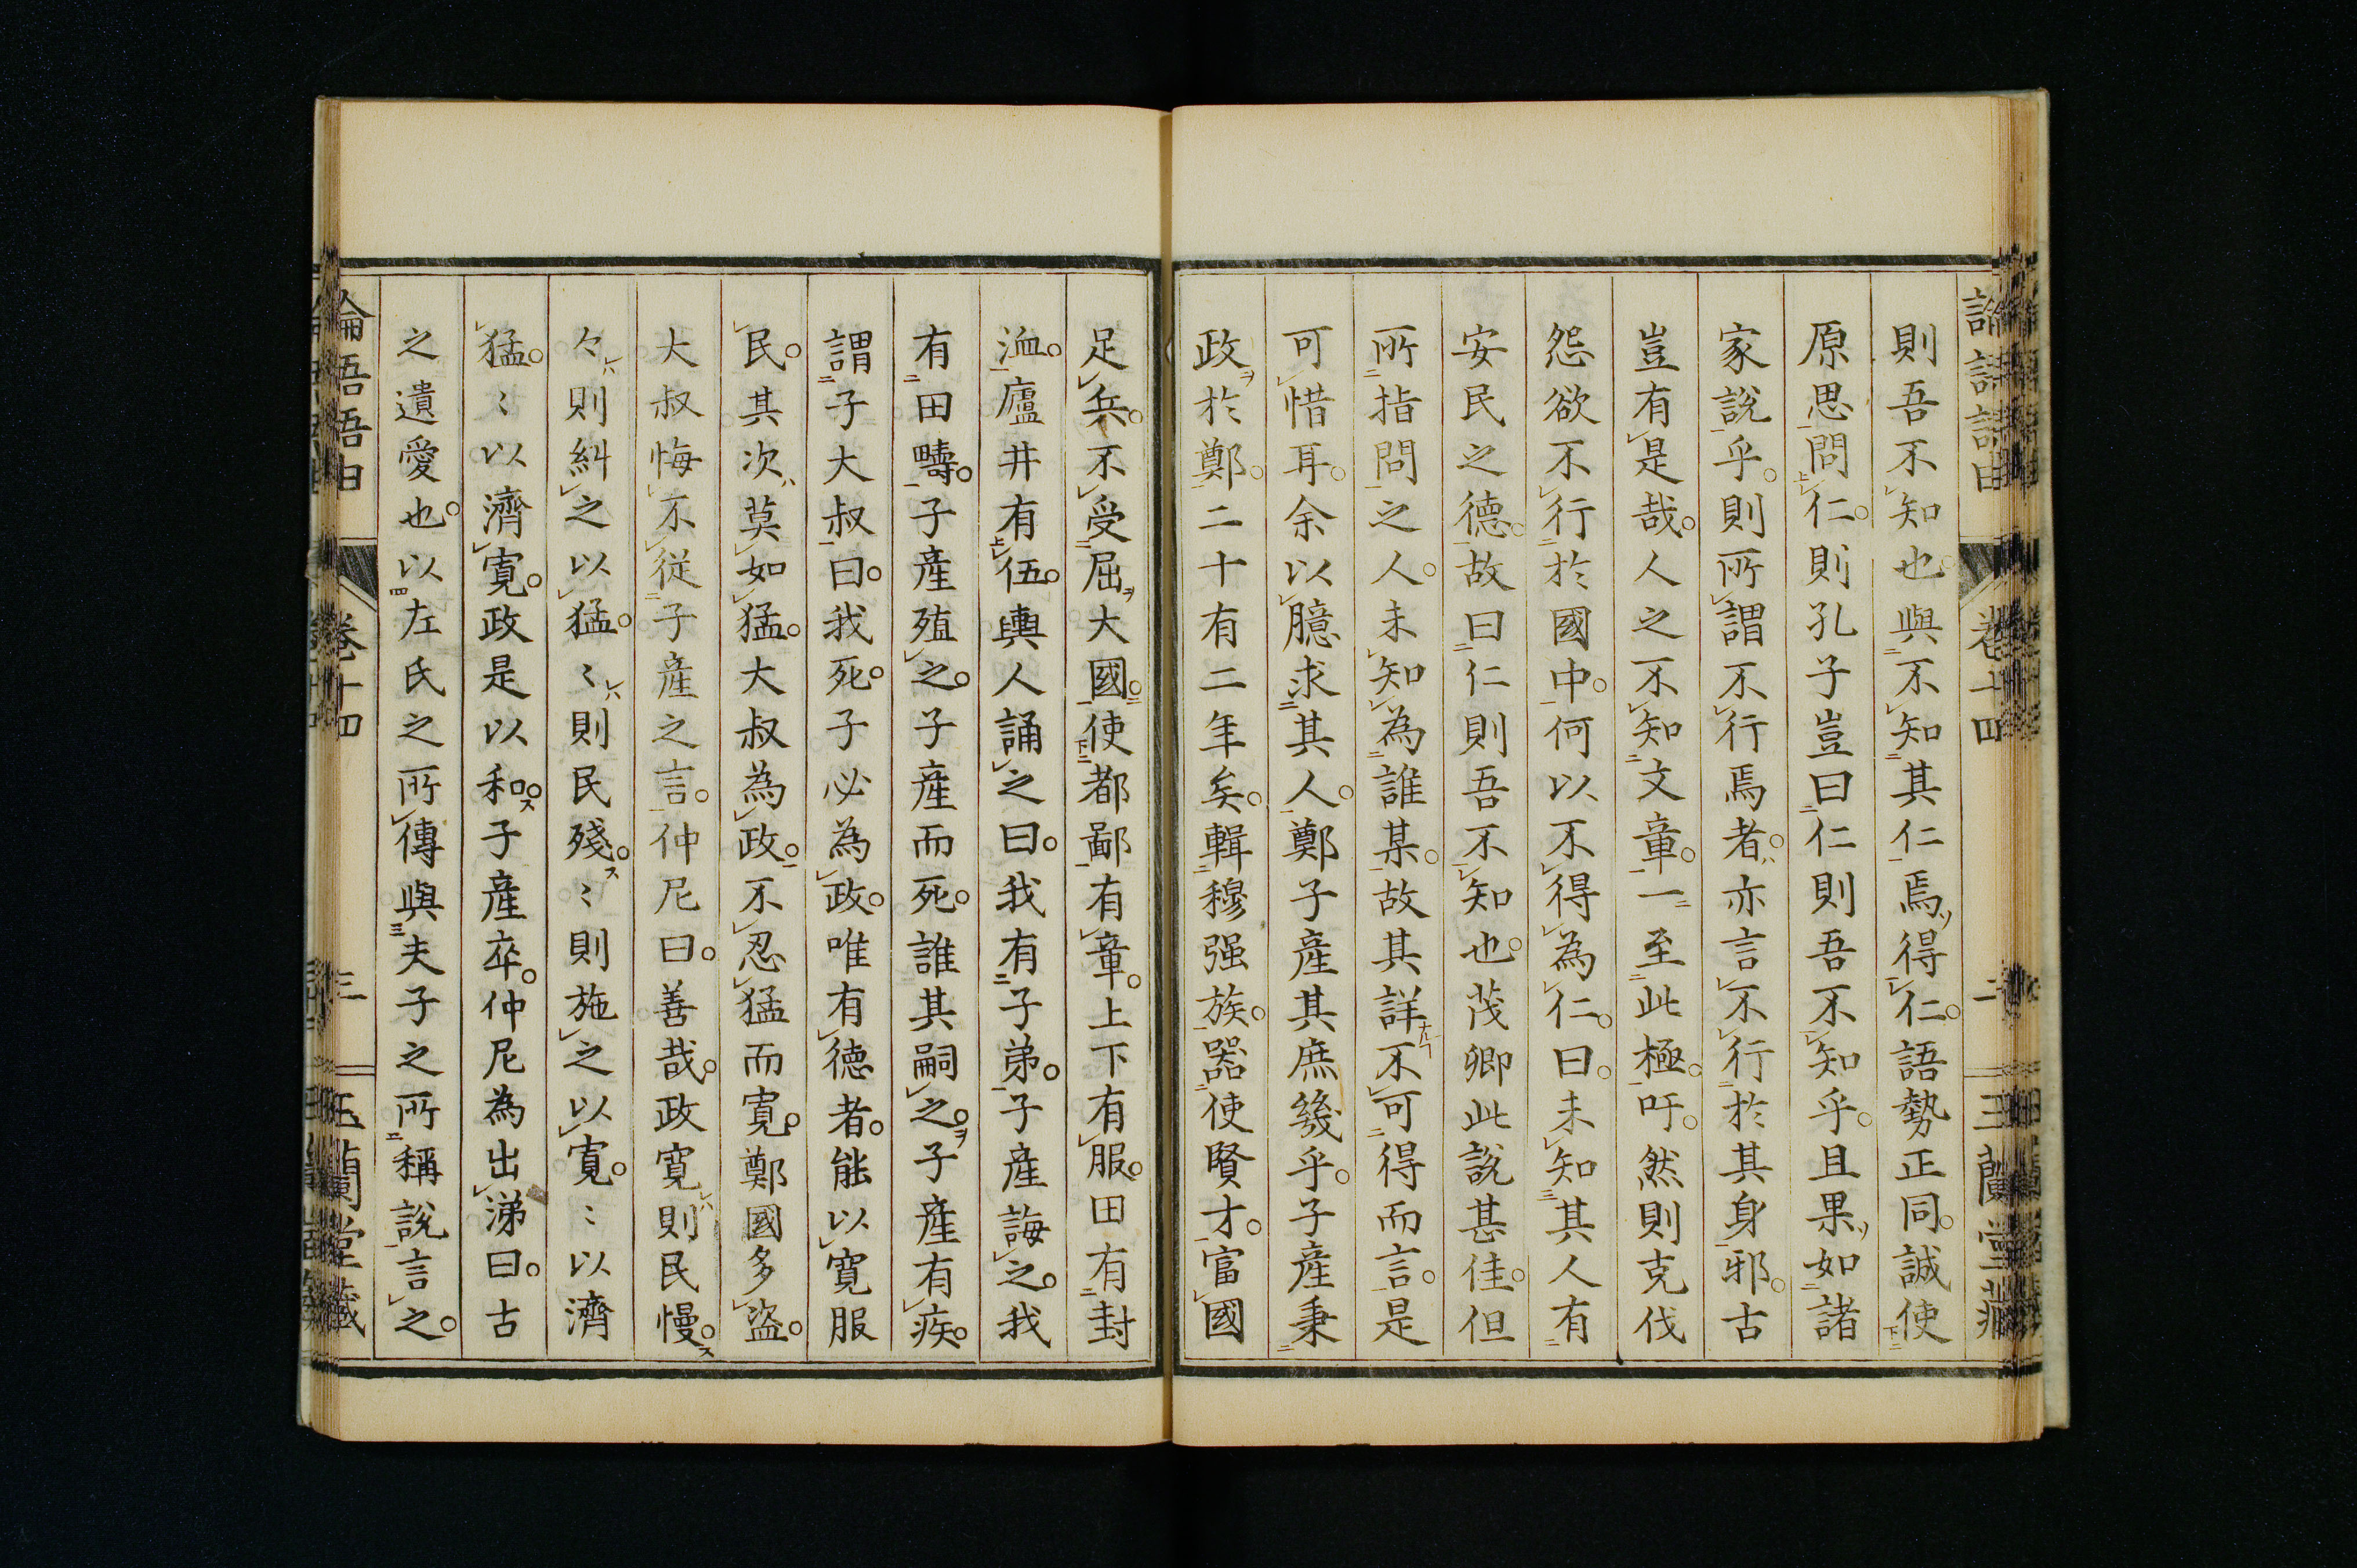 則吾不知也。與不知其仁焉。得仁。語勢正同。誠使
原思問仁。則孔子豈曰仁則吾不知乎。且果如諸
家說乎。則所謂不行焉者。亦言不行於其身邪。古
豈有是哉。人之不知文章。一至此極。吁。然則克伐
怨欲不行於國中。何以不得為仁。曰。未知其人有
安民之德。故曰仁則吾不知也。茂卿此說甚佳。但
所指問之人。未知為誰某。故其詳不可得而言。是
可惜耳。余以臆求其人。鄭子產其庶幾乎。子產秉
政於鄭。二十有二年矣。輯穆强族。器使賢才。富國
足兵。不受屈大國。使都鄙有章。上下有服。田有封
洫。廬井有伍。輿人誦之曰。我有子弟。子產誨之。我
有田疇。子產殖之。子產而死。誰其嗣之。子產有疾。
謂子大叔曰。我死。子必為政。唯有德者。能以寬服
民。其次莫如猛。大叔為政。不忍猛而寬。鄭國多盜。
大叔悔不從子產之言。仲尼曰。善哉。政寬則民慢。
々則糾之以猛。〻則民殘。〻則施之以寬。〻以濟
猛。〻以濟寬。政是以和。子產卒。仲尼為出涕曰。古
之遺愛也。以左氏之所傳與夫子之所稱說言之。
卷十四
三